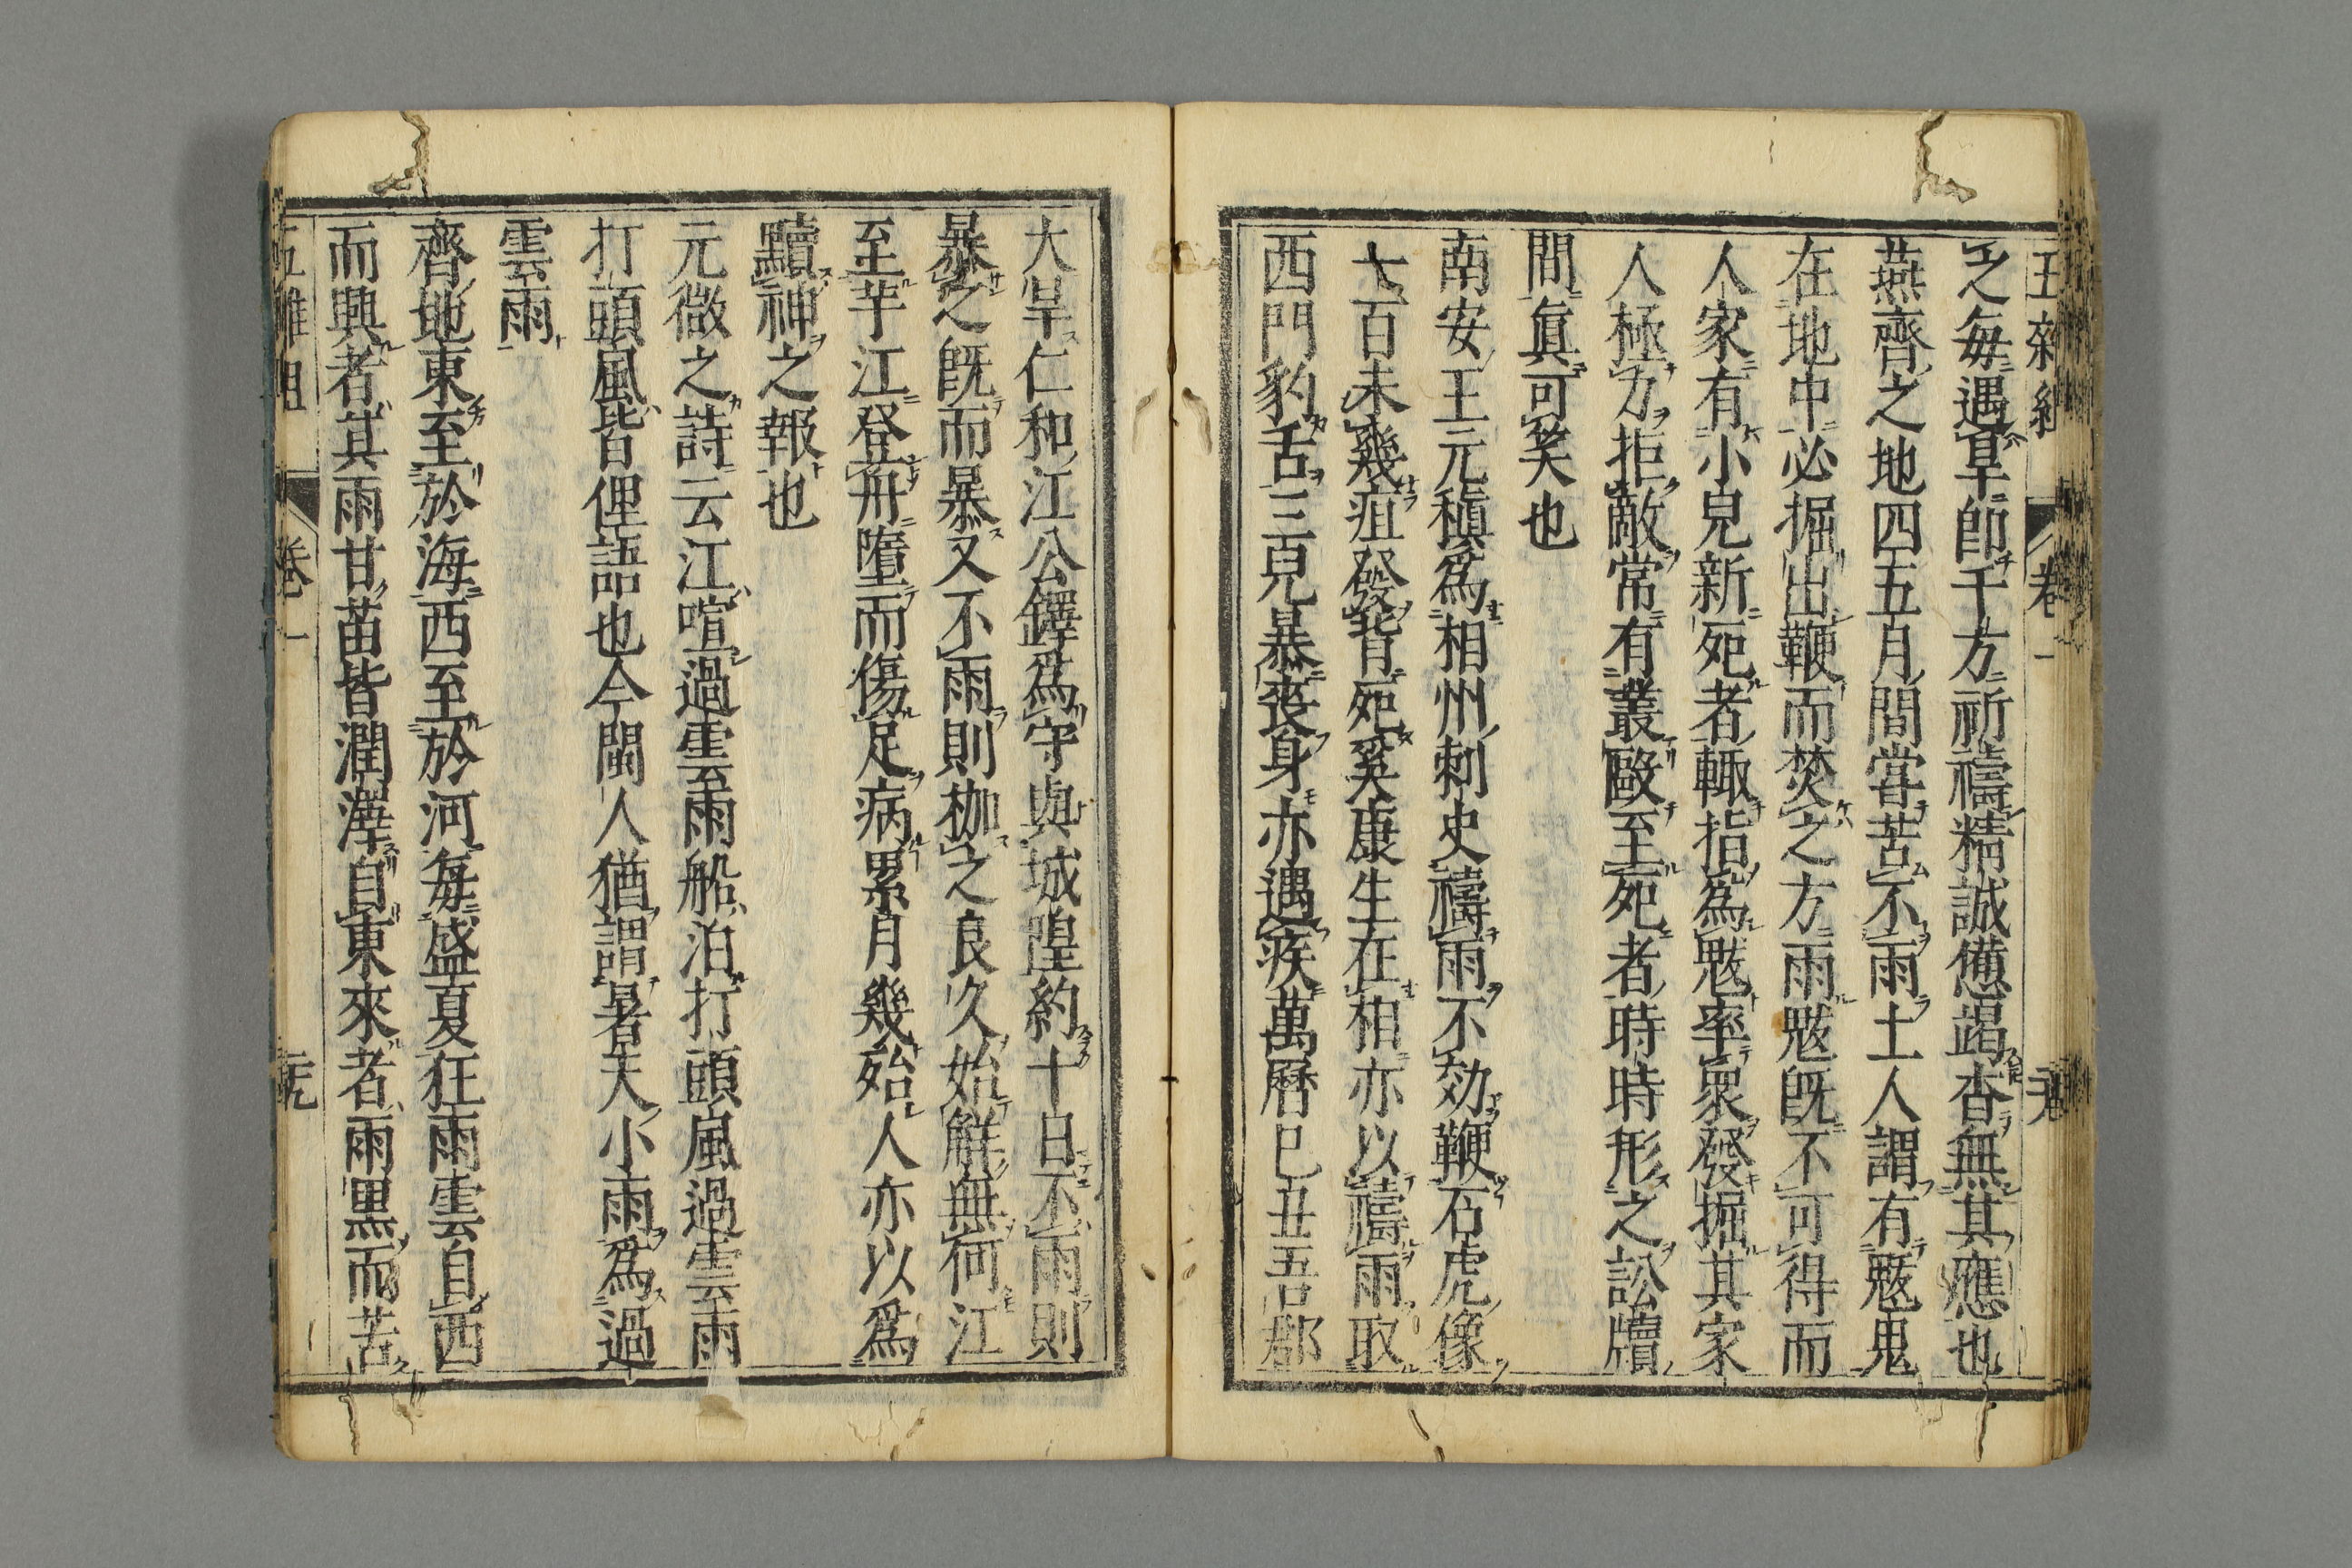 五雜組 卷一
之每遇旱卽千方祈禱精誠備竭杳無其應也
燕齊之地四五月間嘗苦不雨土人謂有魃鬼
在地中必掘出鞭而焚之方雨魃旣不可得而
人家有小兒新死者輒指爲魃率衆發掘其家
人極力拒敵常有叢毆至死者時時形之訟牘
間眞可笑也
南安王元積爲相州刺史禱雨不効鞭石虎像
一百未幾疽發背死奚康生在相亦以禱雨取
西門豹舌三兒暴喪身亦遇疾萬曆己丑吾郡
大旱仁和江公鐸爲守與城隍約十日不雨則
暴之旣而暴又不雨則枷之良久始解無何江
至芋江登舟墮而傷足病累月幾殆人亦以爲
黷神之報也
元微之詩云江喧過雲雨船泊打頭風過雲雨
打頭風皆俚語也今閩人猶謂暑天小雨爲過
雲雨
齊地東至於海西至於河每盛夏狂雨雲自西
而興者其雨甘苗皆潤澤自東來者雨黑而苦
五雜組 卷一